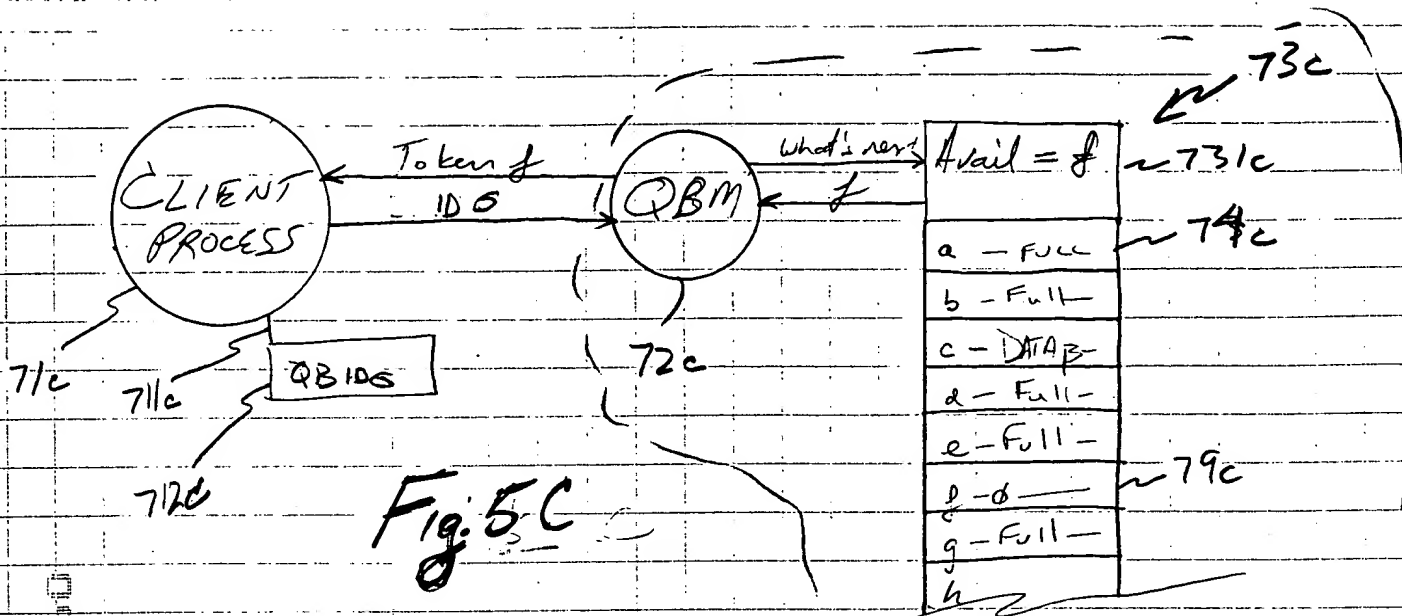 73c
CLIENT
PROCESS
Token f
ID6
QBM
what's next
f
Avail = f
731c
74c
a - FULL
b - Full
c - DATA β
d - Full
e - Full
f - ϕ
79c
g - Full
h
71c
711c
QB ID6
712c
72c
Fig. 5C